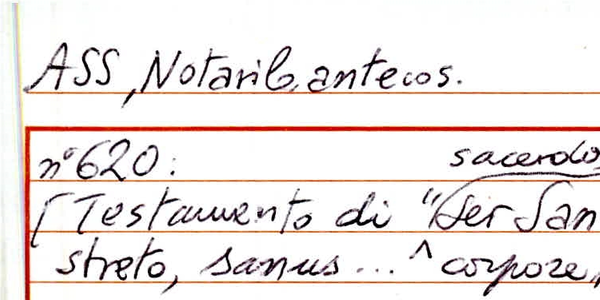 ASS, Notarile antecos.
n° 620:
sacerdo
[Testamento di "Ser San
streto, sanus... ^ corpore,